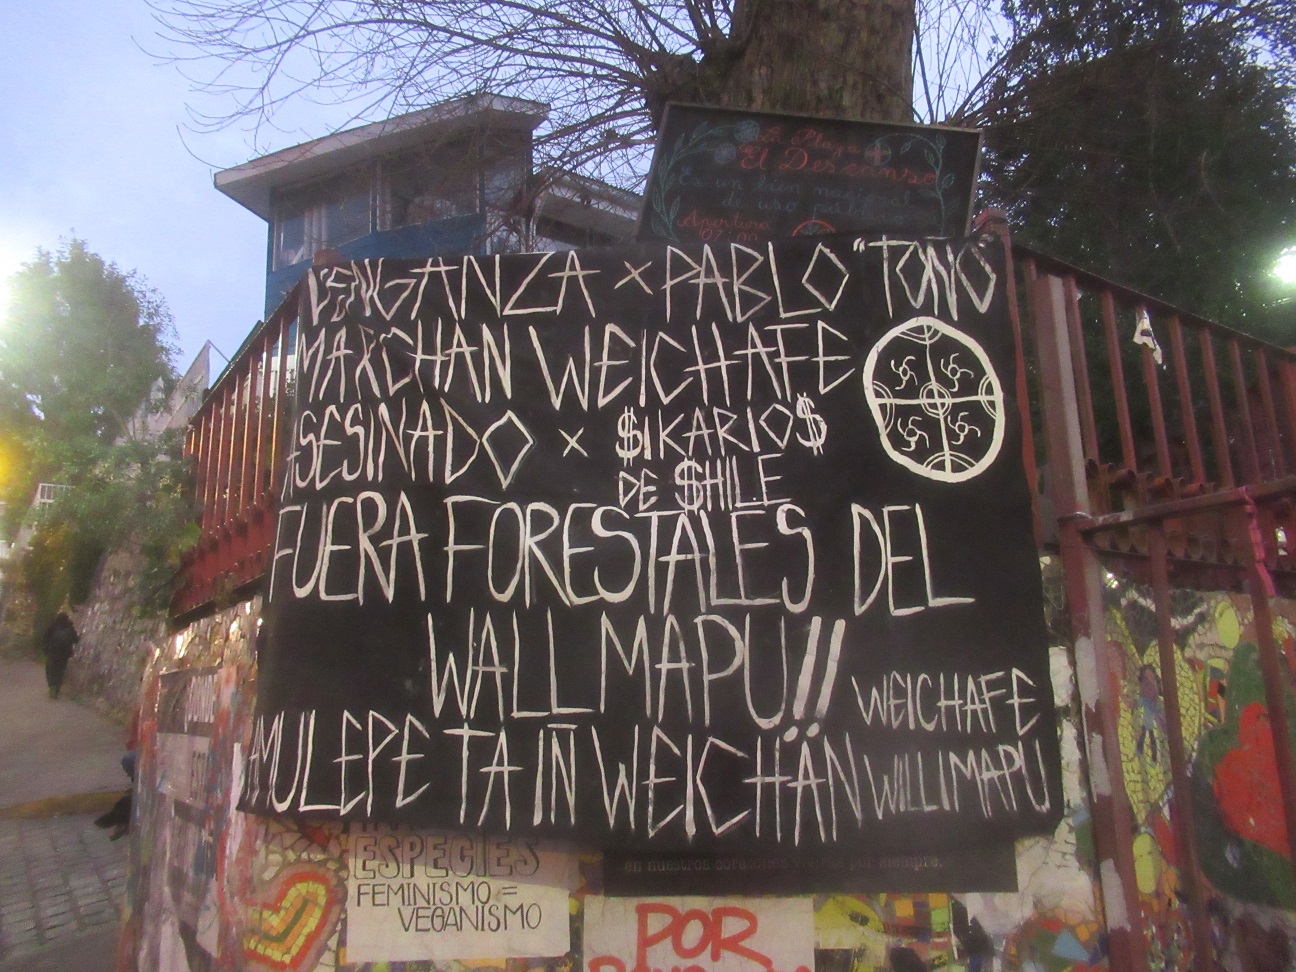 La Plaza
El Descanso
Es un bien nacional
de uso público
Apertura
VENGANZA x PABLO "TOÑO"
MARCHAN WEICHAFE
ASESINADO x $IKARIO$
DE $HILE
FUERA FORESTALES DEL
WALLMAPU!!
WEICHAFE
AMULEPE TAIÑ WEICHÄN WILLIMAPU
ESPECIES
FEMINISMO =
VEGANISMO
en nuestros corazones vivirás por siempre.
POR